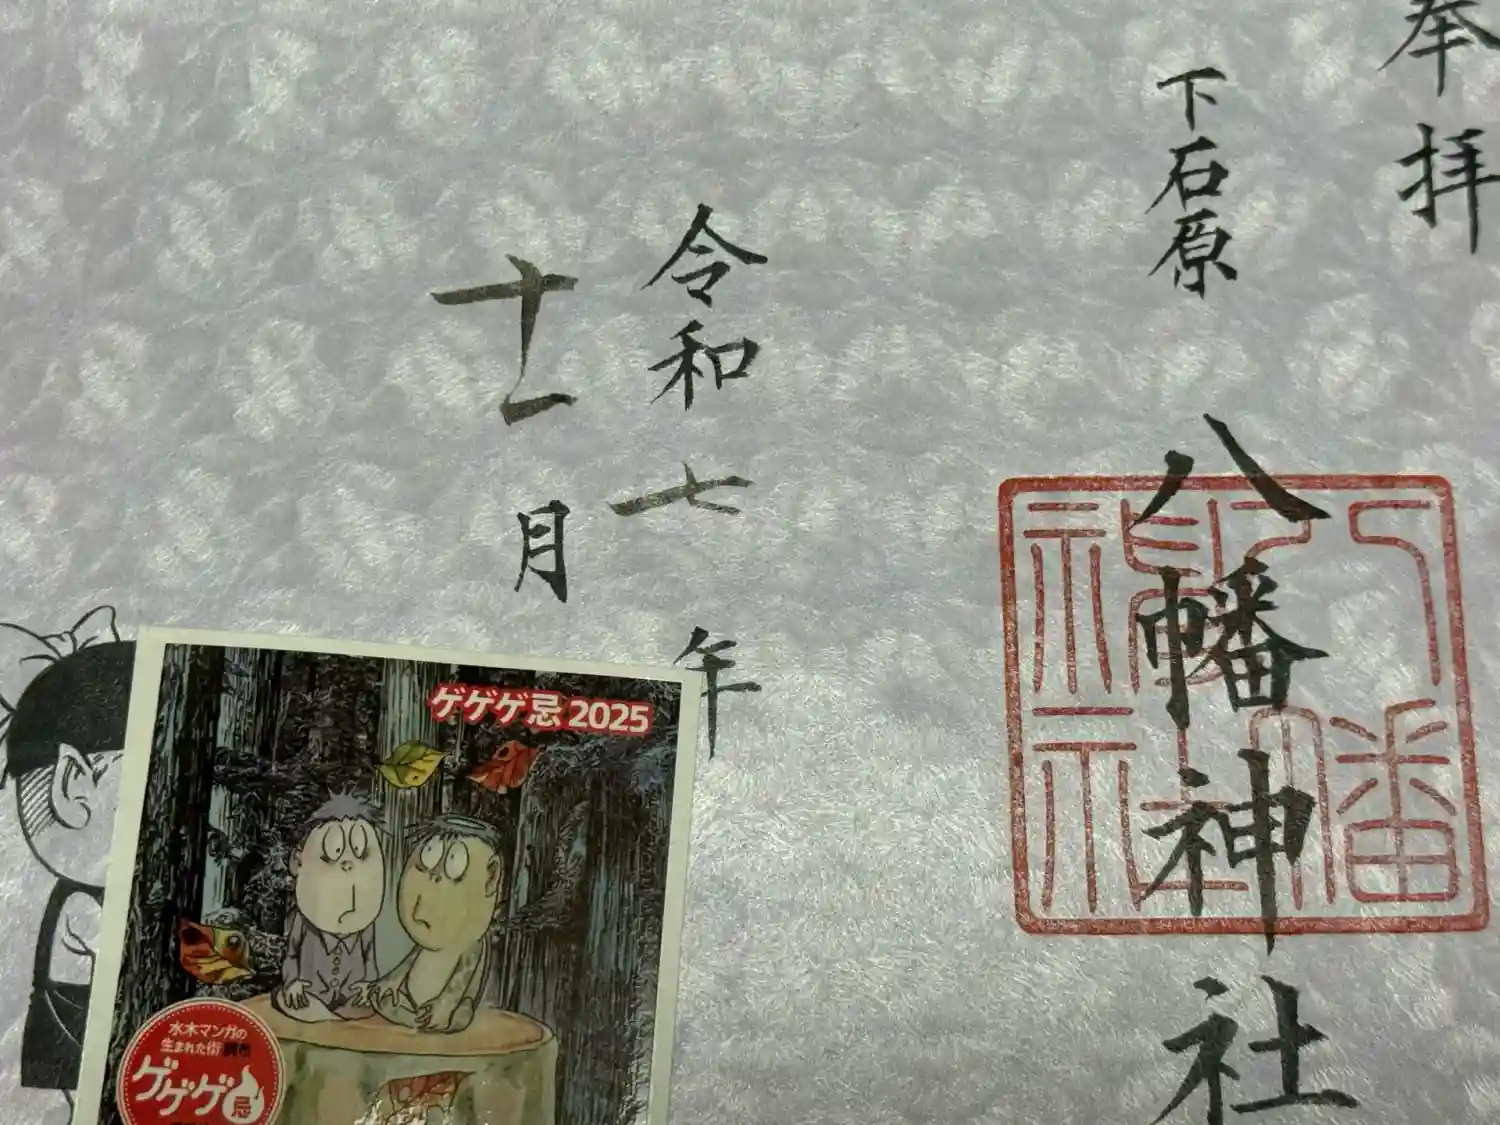 奉拝
下石原
八幡神社
八幡神社
令和七年
十一月
ゲゲゲ忌2025
水木マンガの
生まれた街 調布
ゲゲゲ忌